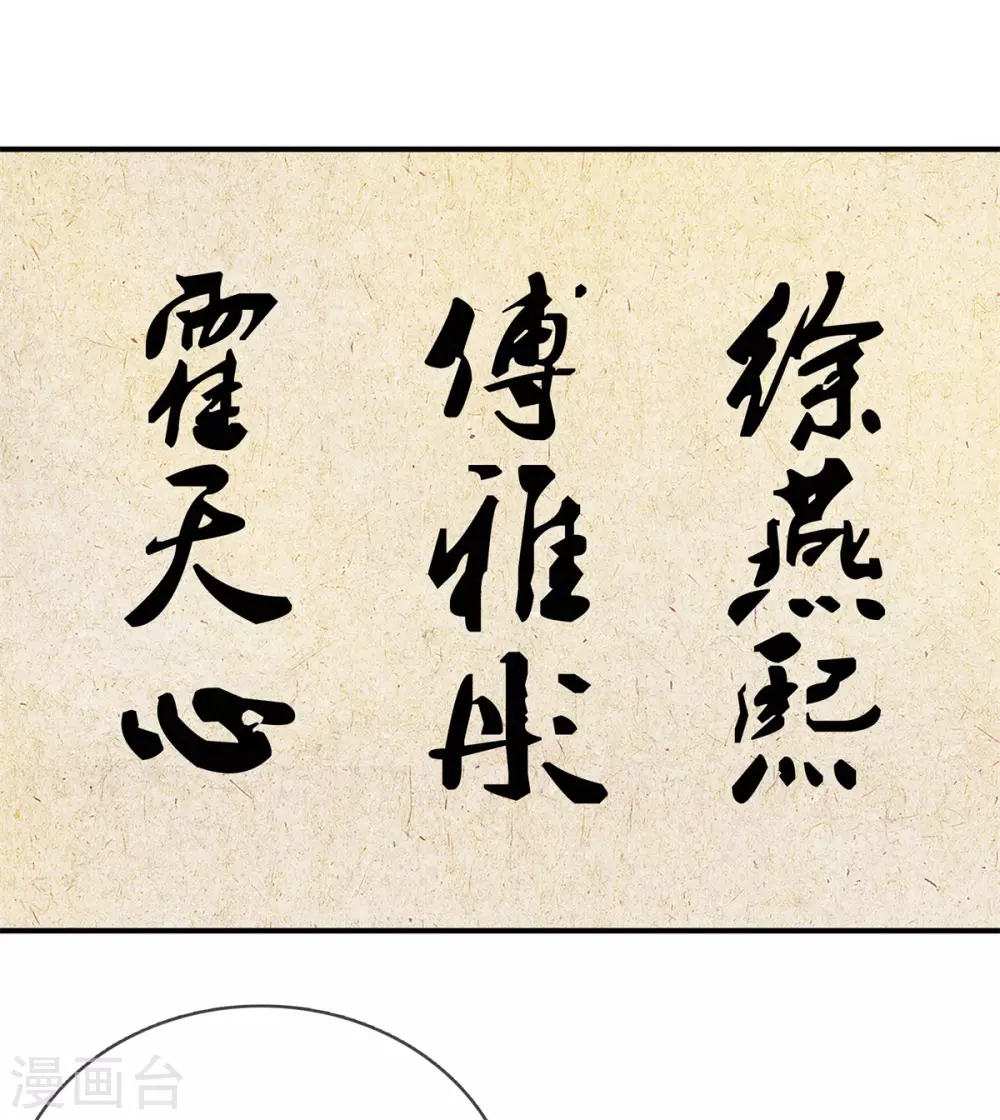 徐燕熙
傅雅彤
霍天心
漫画台